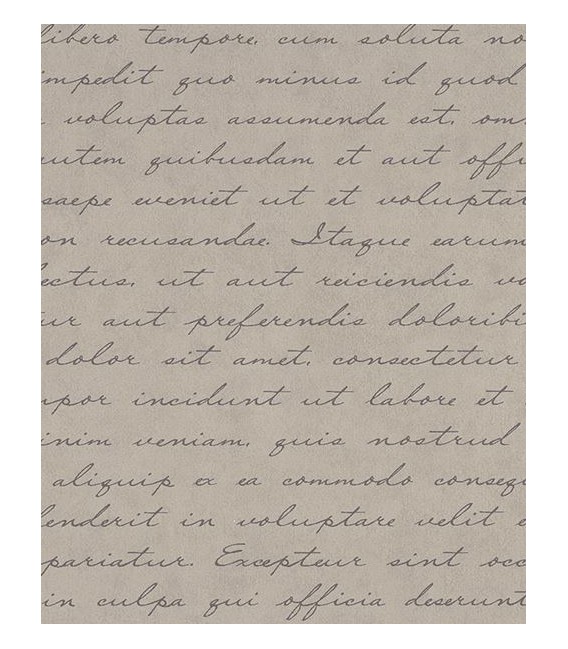 libero tempore, cum soluta no
impedit quo minus id quod
voluptas assumenda est, om
utem quibusdam et aut offi
saepe eveniet ut et voluptat
on recusandae. Itaque earum
lectus, ut aut reiciendis vo
ur aut preferendis doloribu
dolor sit amet, consectetur
mpor incidunt ut labore et
inim veniam, quis nostrud
aliquip ex ea commodo consequ
enderit in voluptare velit e
pariatur. Excepteur sint occ
in culpa qui officia deserunt